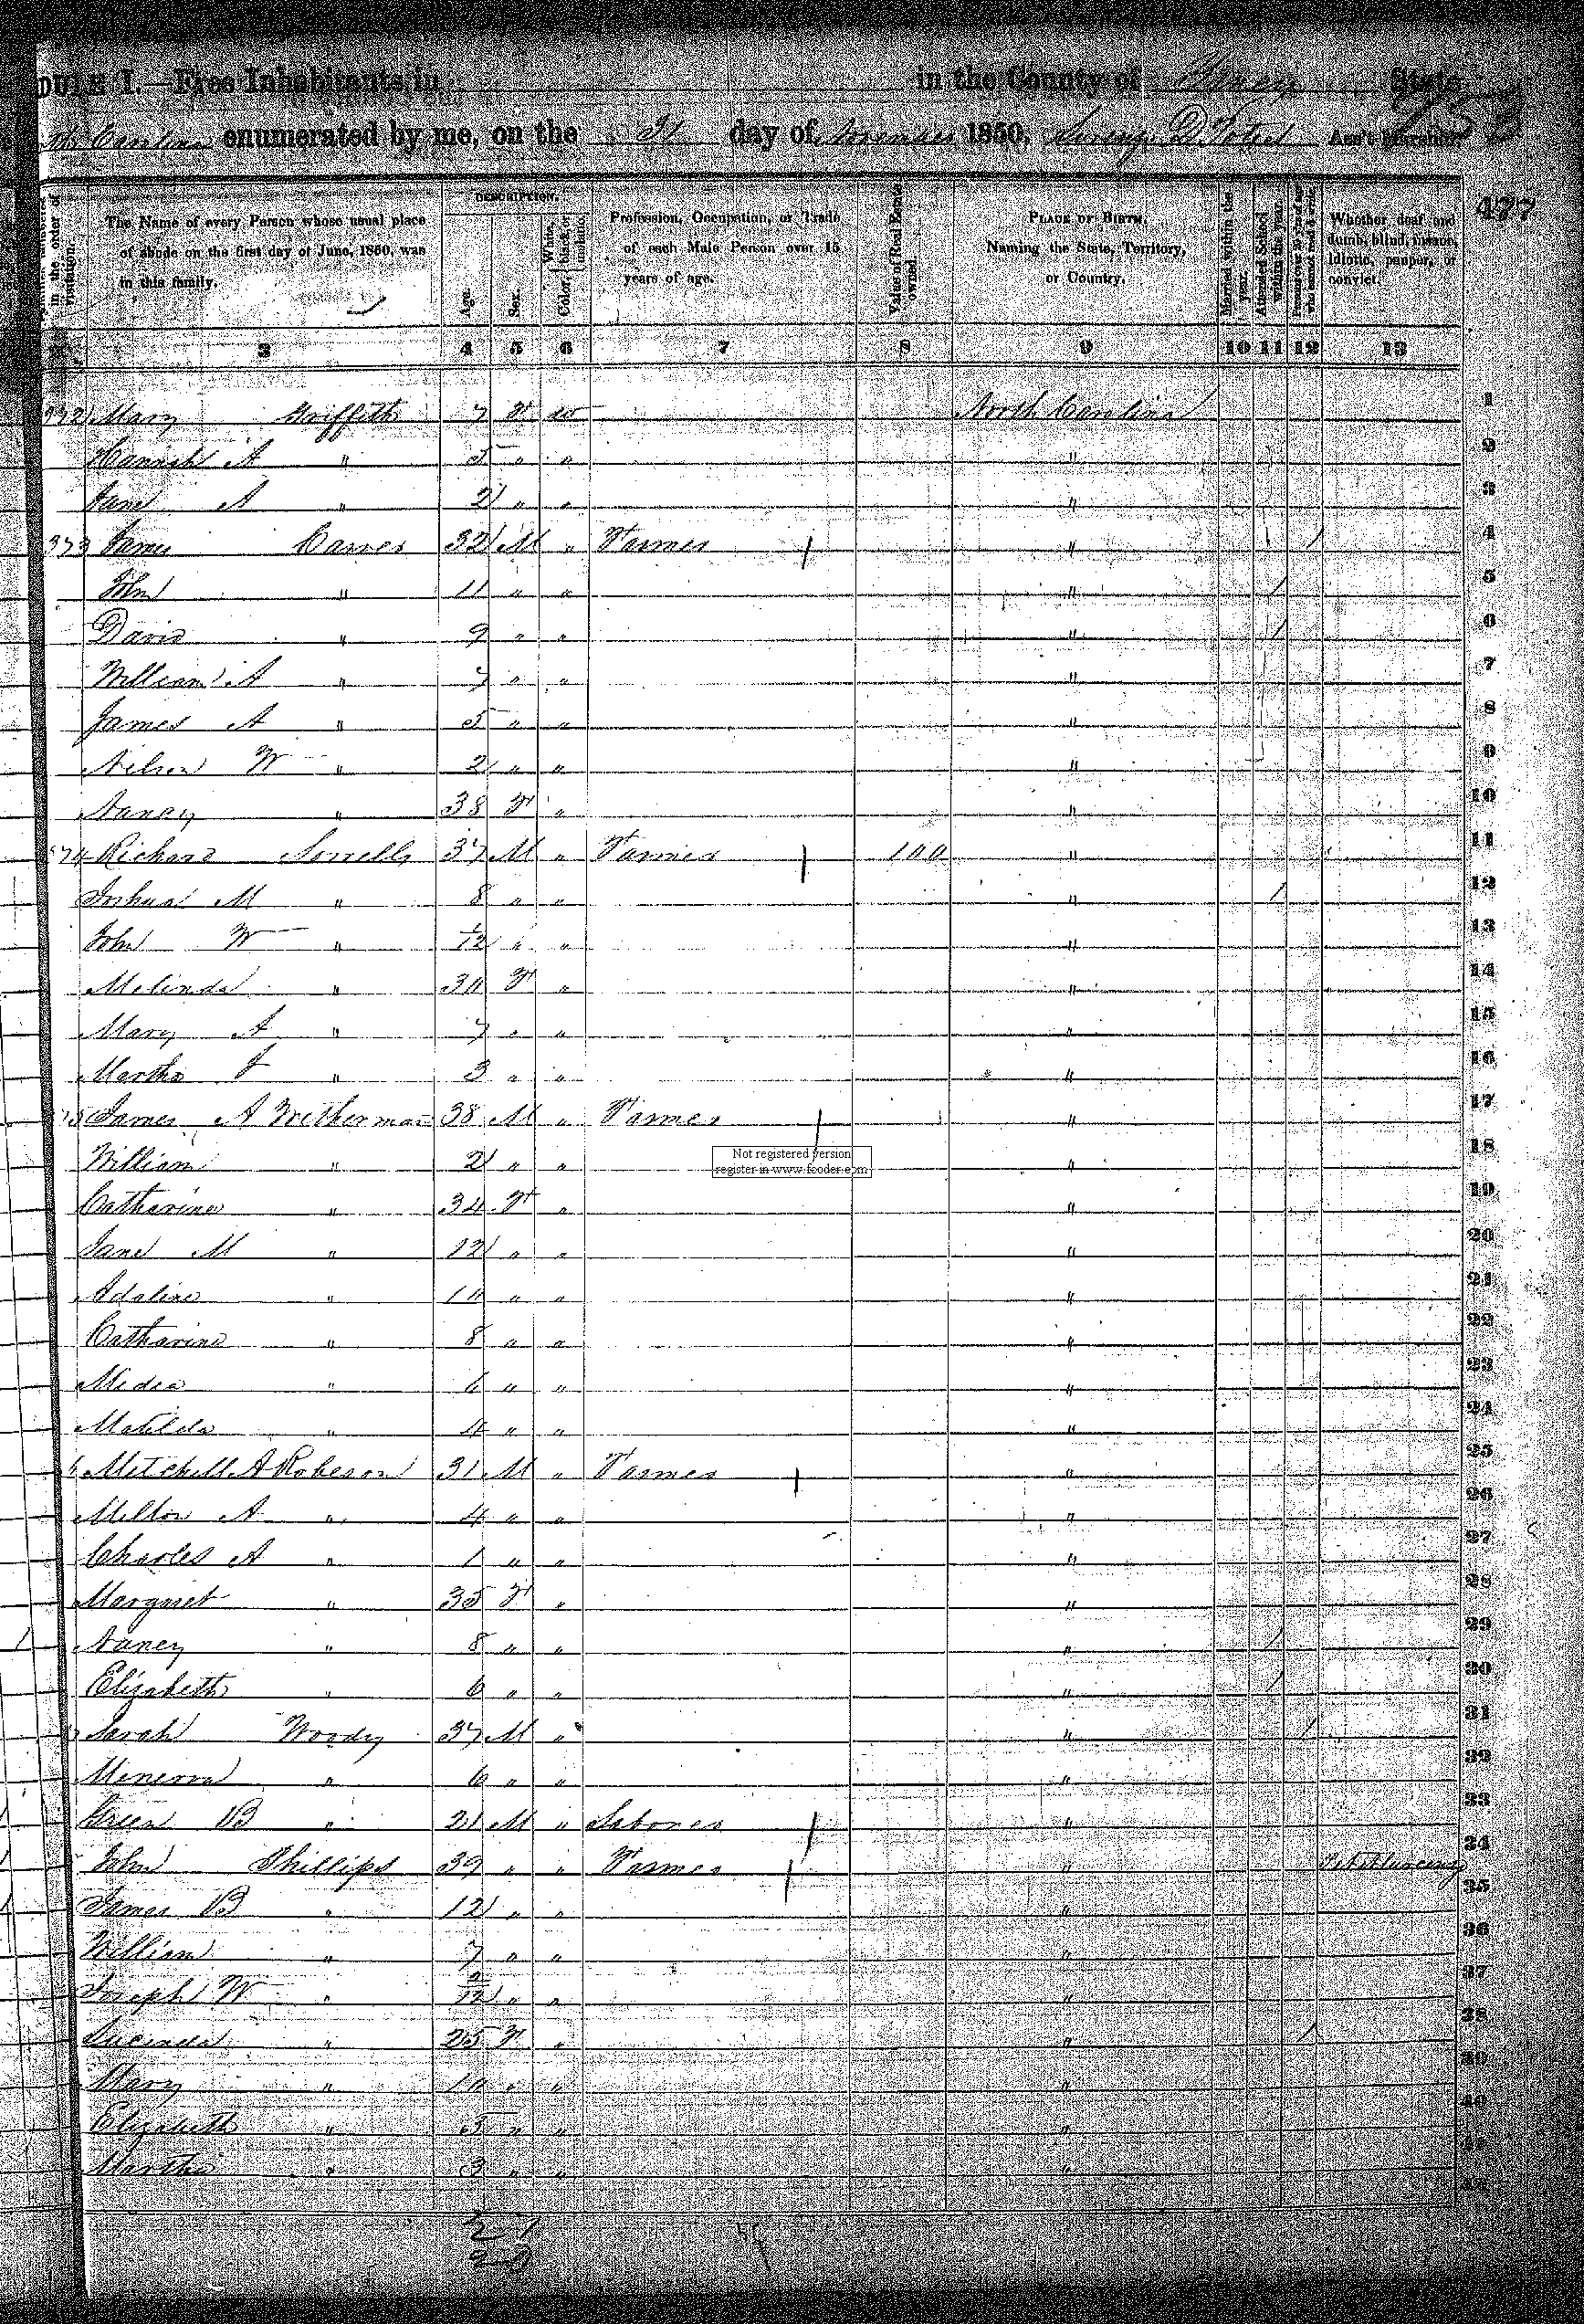 DULE I.—Free Inhabitants in in the County of Yancey State
enumerated by me, on the day of November 1850, Ass't Marshal.
477
in the order of visitation.
The Name of every Person whose usual place of abode on the first day of June, 1850, was in this family.
DESCRIPTION.
Age.
Sex.
Color, { White, black, or mulatto.
Profession, Occupation, or Trade of each Male Person over 15 years of age.
Value of Real Estate owned.
PLACE OF BIRTH, Naming the State, Territory, or Country.
Married within the year.
Attended School within the year.
Persons over 20 y'rs of age who cannot read & write.
Whether deaf and dumb, blind, insane, idiotic, pauper, or convict.
3 4 5 6 7 8 9 10 11 12 13
Mary Griffith 7 F W North Carolina 1
Hannah A " 5 " " " 2
Jane A " 2 " " " 3
373 James 32 M " Farmer " / 4
John " 11 " " " / 5
David " 9 " " " / 6
William A " 7 " " " 7
James A " 5 " " " 8
Nelson W " 2 " " " 9
Nancy " 38 F " " 10
Richard Sorrells 37 M " Farmer 100 " 11
Joshua M " 8 " " " / 12
John W " 1/12 " " " 13
Melinda " 30 F " " 14
Mary A " 7 " " " 15
Martha J " 3 " " " 16
James A Wetherman 38 M " Farmer " 17
Not registered version
register in www.fcoder.com
William " 2 " " " 18
Catharine " 34 F " " 19
Jane M " 12 " " " 20
Adaline " 10 " " " 21
Catharine " 8 " " " 22
" 6 " " " 23
Matilda " 4 " " " 24
Mitchell A Roberson 31 M " Farmer " 25
Milton A " 4 " " " 26
Charles A " 1 " " " 27
Margaret " 35 F " " 28
Nancy " 8 " " " / 29
Elizabeth " 6 " " " / 30
Sarah Woody 37 M " " / 31
Minerva " 6 " " " 32
Green B " 21 M " Laborer " 33
John Phillips 39 " " Farmer " 34
James B " 12 " " " 35
William " 7 " " " 36
Joseph W " 2/12 " " " 37
Lucinda " 25 F " " / 38
Mary " 10 " " " 39
Elizabeth " 5 " " " 40
Martha " 3 " " "